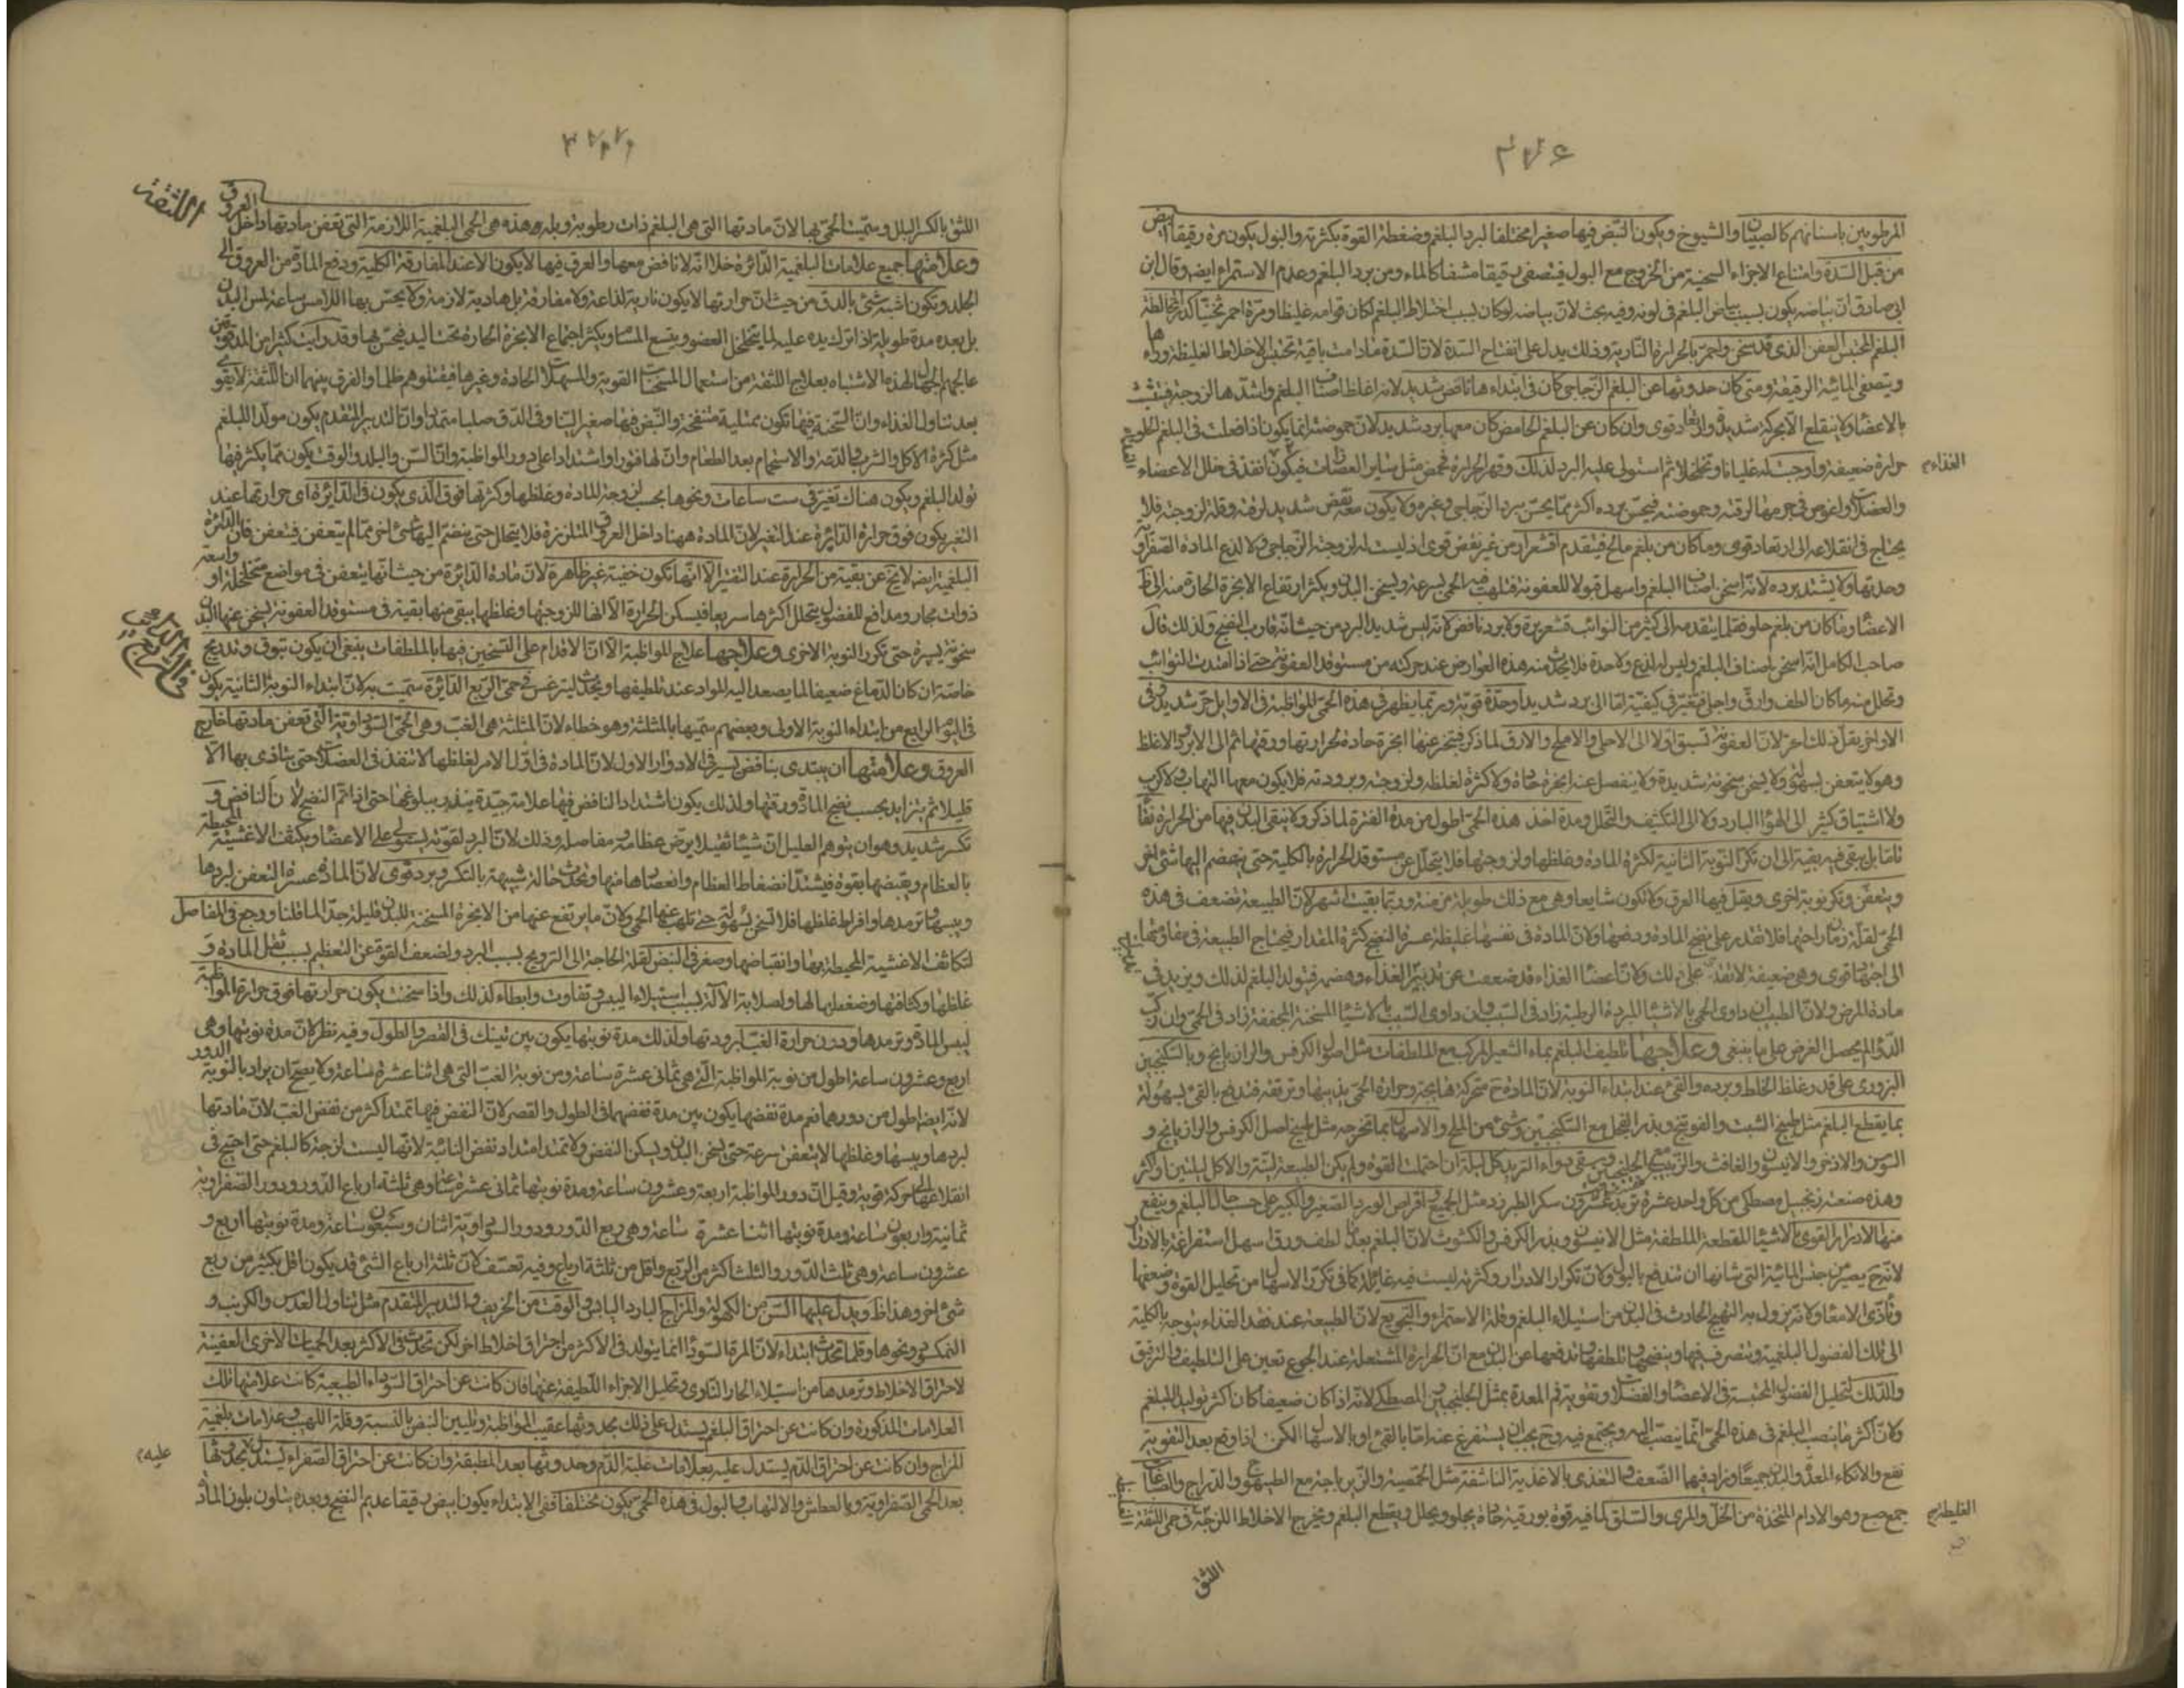 ٣٧٦
المرطوبين باسنانهم كالصبيان والشيوخ ويكون النبض فيها صغيرا مختلفا لبرد البلغم وضغطه القوة بكثرته والبول يكون مرة رقيقا ابيض
من قبل السدة وامتناع الاجزاء السخينة من الخروج مع البول فيتصفى رقيقا مشفا كالماء ومن برد البلغم وعدم الاستمراء ايضا وقال ابن
ابى صادق ان بياضه يكون بسبب بياض البلغم فى لونه وفيه بحث لان بياضه لو كان بسبب اختلاط البلغم لكان قوامه غليظا ومرة احمر ثخينا كدرا لمخالطة
البلغم المحتبس العفن الذى قد سخن واحمر بالحرارة النارية وذلك يدل على انفتاح السدة لان السدة ما دامت باقية تحتبس الاخلاط الغليظة وراءها
ويتصفى المائية الرقيقة ومتى كان حدوثها عن البلغم الزجاجى كان فى ابتداءها نافض شديد لانه اغلظ اصناف البلغم واشدها لزوجة فيتشبث
بالاعضاء ولا ينقلع الا بحركة شديدة وارتعاد قوى وان كان عن البلغم الحامض كان معها برد شديد لان حموضته انما يكون اذا فعلت فى البلغم الحلو
حرارة ضعيفة واوجبت له غليانا وتخلخلا ثم استولى عليه البرد لذلك وقهر الحرارة فحمض مثل ساير العصارات فيكون انفذ فى خلل الاعضاء
الغذاء
والعضلات واغوص فى جرمها لرقته وحموضته فيحس برده اكثر مما يحس ببرد الزجاجى وغيره ولا يكون معه نفض شديد لرقته وقلة لزوجته فلا
يحتاج فى انقلاعه الى ارتعاد قوى وما كان من بلغم مالح فيتقدم اقشعرار من غير نفض قوى اذ ليست له لزوجة الزجاجى ولا لدع المادة الصفراوية
وحدتها ولا يشتد برده لانه اسخن اصناف البلغم واسهل قبولا للعفونة فتلهب فيه الحمى بسرعة ويسخن البدن ويكثر ارتفاع الابخرة الحارة منه الى ظاهر
الاعضاء وما كان من بلغم حلو فقلما يتقدمه الى كثير من النوائب قشعريرة ولا برد نافض لانه ليس شديد البرد من حيث انه قارب النضج ولذلك قال
صاحب الكامل انه اسخن اصناف البلغم وليس له لذع ولا حدة فلا يحدث منه هذه العوارض عند حركته من مستوقد العفونة حتى اذا امتدت النوائب
وتحلل منه ما كان الطف وارق واحلى فتغير فى كيفيته اما الى برد شديد او حدة قوية وربما يظهر فى هذه الحمى المواظبة فى الاوايل حر شديد وفى
الاواخر يقل ذلك الحر لان العفونة تسبق اولا الى الاحلى والاملح والارق لما ذكر فيتبخر عنها ابخرة حادة لحرارتها ورقتها ثم الى الابرد الاغلظ
وهو لا يتعفن بسهولة ولا يسخن سخونة شديدة ولا ينفصل عنه ابخرة حادة ولا كثيرة لغلظه ولزوجته وبرودته فلا يكون معها التهاب ولا كرب
ولا اشتياق كثير الى الهواء البارد ولا الى التكثيف والتحلل ومدة اخذ هذه الحمى اطول من مدة الفترة لما ذكر ولا ينقى البدن فيها من الحرارة نقاء
تاما بل يبقى فيه بقية الى ان تكر النوبة الثانية لكثرة المادة وغلظها ولزوجتها فلا يتحلل عن مستوقد الحرارة بالكلية حتى ينضم اليها شئ اخر
ويتعفن وتكر نوبة اخرى ويقل فيها العرق ولا تكون شايعا وهى مع ذلك طويلة مزمنة وربما بقيت اشهر لان الطبيعة تضعف فى هذه
الحمى لقلة زمان راحتها فلا تقدر على نضج المادة ودفعها ولان المادة فى نفسها غليظة عسرة النضج كثيرة المقدار فيحتاج الطبيعة فى مقاومتها
الى اجتهاد قوى وهى ضعيفة لا تقدر على ذلك ولان اعضاء الغذاء قد ضعفت عن تدبير الغذاء وهضمه فيتولد البلغم لذلك ويزيد فى
مادة المرض ولان الطبيب ان داوى الحمى بالاشياء المبردة الرطبة زاد فى السبب وان داوى السبب بالاشياء المسخنة المجففة زاد فى الحمى وان ركب
الدواء لم يحصل الغرض على ما ينبغى وعلاجها تلطيف البلغم بماء الشعير المركب مع الملطفات مثل اصول الكرفس والرازيانج وبالسكنجبين
البزورى على قدر غلظ الخلط وبرده والقئ عند ابتداء النوبة لان المادة ح متحركة هايجة وحرارة الحمى يذيبها وترققه فتندفع بالقئ بسهولة
بما يقطع البلغم مثل طبيخ الشبت والفوتنج وبذر الفجل مع السكنجبين وشئ من الملح والاسهال بما تخرجه مثل طبيخ اصل الكرفس والرازيانج و
السوس والاذخر والانيسون والغافث والزبيب مع الجلنجبين ويسقى دواء التربد كل ليلة ان احتملت القوة ولم يكن الطبيعة لينة والا كل ليلتين او اكثر
وهذه صفته زنجبيل ومصطكى من كل واحد عشرة تربد عشرون سكر الطبرزد مثل الجميع اقراص الورد الصغير والكبير على حسب حال البلغم وينفع
منها الادرار القوى بالاشياء المقطعة الملطفة مثل الانيسون وبذر الكرفس والكشوث لان البلغم بعد ما لطف ورق سهل استفراغه بالادرار
لانه ح يصير من جنس المائية التى شانها ان تندفع بالبول ولان تكرار الادرار وكثرته ليست فيه غايلة كما فى تكرر الاسهال من تحليل القوة وضعفها
وتاذى الامعاء ولانه يزول به التهيج الحادث فى البدن من استيلاء البلغم وقلة الاستمراء والتجويع لان الطبيعة عند فقد الغذاء يتوجه بالكلية
الى تلك الفضول البلغمية وتتصرف فيها وينضجها ويلطفها ويدفعها عن البدن مع ان الحرارة المشتعلة عند الجوع تعين على التلطيف والترقيق
والدلك لتحليل الفضول المحتبسة فى الاعضاء والعضلات وتقوية فم المعدة بمثل الجلنجبين والمصطكى لانه اذا كان ضعيفا كان اكثر توليدا للبلغم
ولان اكثر ما ينصب البلغم فى هذه الحمى انما ينصب اليه ويجتمع فيه وح يجب ان يستفرغ عنه اما بالقئ او بالاسهال لكن اذا وقع بعد التقوية
نفع والا نكاء المعدة والبدن جميعا وزاد فيها الضعف والتغذى بالاغذية الناشفة مثل الحمصية والزيرباجة مع الطيهوج والدراج والصباغات
جمع صبغ وهو الادام المتخذة من الخل والمرى والسلق لما فيه قوة بورقية حادة يجلو ويحلل ويقطع البلغم ويخرج الاخلاط اللزجة فى حمى اللثقة
الغليظة
اللثق
٣٧٧
اللثقة
اللثق بالكسر البلل وسميت الحمى بها لان مادتها التى هى البلغم ذات رطوبة وبلة وهذه هى الحمى البلغمية اللازمة التى تعفن مادتها داخل العروق
وعلامتها جميع علامات البلغمية الدائرة خلا انه لا نافض معها والعرق فيها لا يكون الا عند المفارقة الكلية ودفع المادة من العروق الى
الجلد وتكون اشبه شئ بالدق من حيث ان حرارتها لا يكون نارية لذاعة ولا مفارقة بل هادية لازمة ولا يحس بها اللامس ساعة لمس البدن
بل بعده مدة طويلة اذا ترك يده عليه لما يتخلخل العضو ويتسع المسام ويكثر اجتماع الابخرة الحارة تحت اليد فيحس بها وقد رايت كثيرا من المدقوقين
عالجهم الجهال لهذه الاشتباه بعلاج اللثقة من استعمال المسخنات القوية والمسهلات الحادة وغيرها فقتلوهم ظلما والفرق بينهما ان اللثقة لا يقوى
بعد تناول الغذاء وان السحنة فيها تكون ممتلية منتفخة والنبض فيها صغير لين وفى الدق صلبا متمددا وان التدبير المتقدم يكون مولدا للبلغم
مثل كثرة الاكل والشرب والدعة والاستحمام بعد الطعام وان لها فتورا واشتدادا على دور المواظبة وان السن والبلد والوقت يكون مما يكثر فيها
تولد البلغم ويكون هناك تغير فى ست ساعات ونحوها بحسب لزوجة المادة وغلظها وكثرتها فوق الذى يكون فى الدائرة اى حرارتها عند
التغير يكون فوق حرارة الدائرة عند التغير لان المادة ههنا داخل العروق المتلززة فلا يتحلل حتى ينضم اليها شئ اخر مما لم يتعفن فيتعفن فان الدائرة
البلغمية ايضا لا تخ عن بقية من الحرارة عند الفتر الا انها تكون خفية غير ظاهرة لان مادة الدائرة من حيث انها يتعفن فى مواضع متخلخلة واسعة او
ذوات مجار ومدافع للفضول يتحلل اكثرها سريعا فيسكن الحرارة الا انها للزوجتها وغلظها يبقى منها بقية فى مستوقد العفونة يسخن عنها البدن
سخونة يسيرة حتى تكرر النوبة الاخرى وعلاجها علاج المواظبة الا ان الاقدام على التسخين فيها بالملطفات ينبغى ان يكون بتوق وتدريج
خاصة ان كان الدماغ ضعيفا لما يصعد اليه المواد عند تلطيفها ويحدث ليثرغس فى حمى الربع الدائرة سميت به لان ابتداء النوبة الثانية يكون
فى اليوم الرابع من ابتداء النوبة الاولى وبعضهم سميها بالمثلثة وهو خطاء لان المثلثة هى الغب وهى الحمى السوداوية التى تعفن مادتها خارج
العروق وعلامتها ان يبتدى بنافض يسير فى الادوار الاول لان المادة فى اول الامر لغلظها لا تنفذ فى العضلات حتى يتاذى بها الا
قليلا ثم يتزايد بحسب نضج المادة ورقتها ولذلك يكون اشتداد النافض فيها علامة جيدة ينذر ببلوغها حتى اذا تم النضج لان النافض و
تكسر شديد وهو ان يتوهم العليل ان شيئا ثقيلا يرض عظامه ومفاصله وذلك لان البرد لقوته يستولى على الاعضاء ويكثف الاغشية المحيطة
بالعظام ويقبضها بقوة فيشتد انضغاط العظام وانعصارها منها ويحدث حالة شبيهة بالتكسر وبرد قوى لان المادة عسرة التعفن لبردها
ويبسها وترمدها وافراط غلظها فلا تسخن بسهولة حتى تلهب عنها الحمى ولان ما يرتفع عنها من الابخرة المسخنة للبدن قليلة جدا لما قلنا ووجع فى المفاصل
لتكاثف الاغشية المحيطة بها وانقباضها وصغر فى النبض لقلة الحاجة الى الترويح بسبب البرد ولضعف القوة عن التعظيم بسبب ثقل المادة و
غلظها وكثافتها وضغطها لها ولصلابة الآلة بسبب استيلاء اليبس وتفاوت وابطاء لذلك واذا سخنت يكون حرارتها فوق حرارة المواظبة
ليبس المادة وترمدها ودون حرارة الغب لبرودتها ولذلك مدة نوبتها يكون بين تينك فى القصر والطول وفيه نظر لان مدة نوبتها وهى
اربع وعشرون ساعة اطول من نوبة المواظبة التى هى ثمانى عشرة ساعة ومن نوبة الغب التى هى اثنا عشرة ساعة ولا يصح ان يراد بالنوبة الدور
لانه ايضا اطول من دورهما نعم مدة نفضها يكون بين مدة نفضهما فى الطول والقصر لان النفض فيها تمتد اكثر من نفض الغب لان مادتها
لبردها ويبسها وغلظها لا يتعفن سرعة حتى يسخن البدن ويسكن النفض ولا تمتد امتداد نفض النائبة لانها ليست لزجة كالبلغم حتى احتيج فى
انقلاعها الى حركة قوية وقيل ان دور المواظبة اربعة وعشرون ساعة ومدة نوبتها ثمانى عشرة ساعة وهى ثلثة ارباع الدور ودور الصفراوية
ثمانية واربعون ساعة ومدة نوبتها اثنا عشرة ساعة وهى ربع الدور ودور السوداوية اثنان وسبعون ساعة ومدة نوبتها اربع و
عشرون ساعة وهى ثلث الدور والثلث اكثر من الربع واقل من ثلثة ارباع وفيه تعسف لان ثلثة ارباع الشئ قد يكون اقل بكثير من ربع
شئ اخر وهذا ظ ويدل عليها السن من الكهولة والمزاج البارد اليابس والوقت من الخريف والتدبير المتقدم مثل تناول العدس والكرنب و
النمكسود ونحوها وقلما تحدث ابتداء لان المرة السوداء انما يتولد فى الاكثر من احتراق اخلاط اخر لكن تحدث فى الاكثر بعد الحميات الاخرى العفنية
لاحتراق الاخلاط وترمدها من استيلاء الحار النارى وتحليل الاجزاء اللطيفة عنها فان كانت عن احتراق السوداء الطبيعية كانت علامتها تلك
العلامات المذكورة وان كانت عن احتراق البلغم يستدل على ذلك بحدوثها عقيب المواظبة ولين النبض بالنسبة وقلة اللهب وعلامات بلغمية
المزاج وان كانت عن احتراق الدم يستدل عليه بعلامات غلبة الدم وحدوثها بعد المطبقة وان كانت عن احتراق الصفراء يستدل بحدوثها
عليه
بعد الحمى الصفراوية وبالعطش والالتهاب والبول فى هذه الحمى يكون مختلفا ففى الابتداء يكون ابيض رقيقا عديم النضج وبعده يتلون بلون المادة